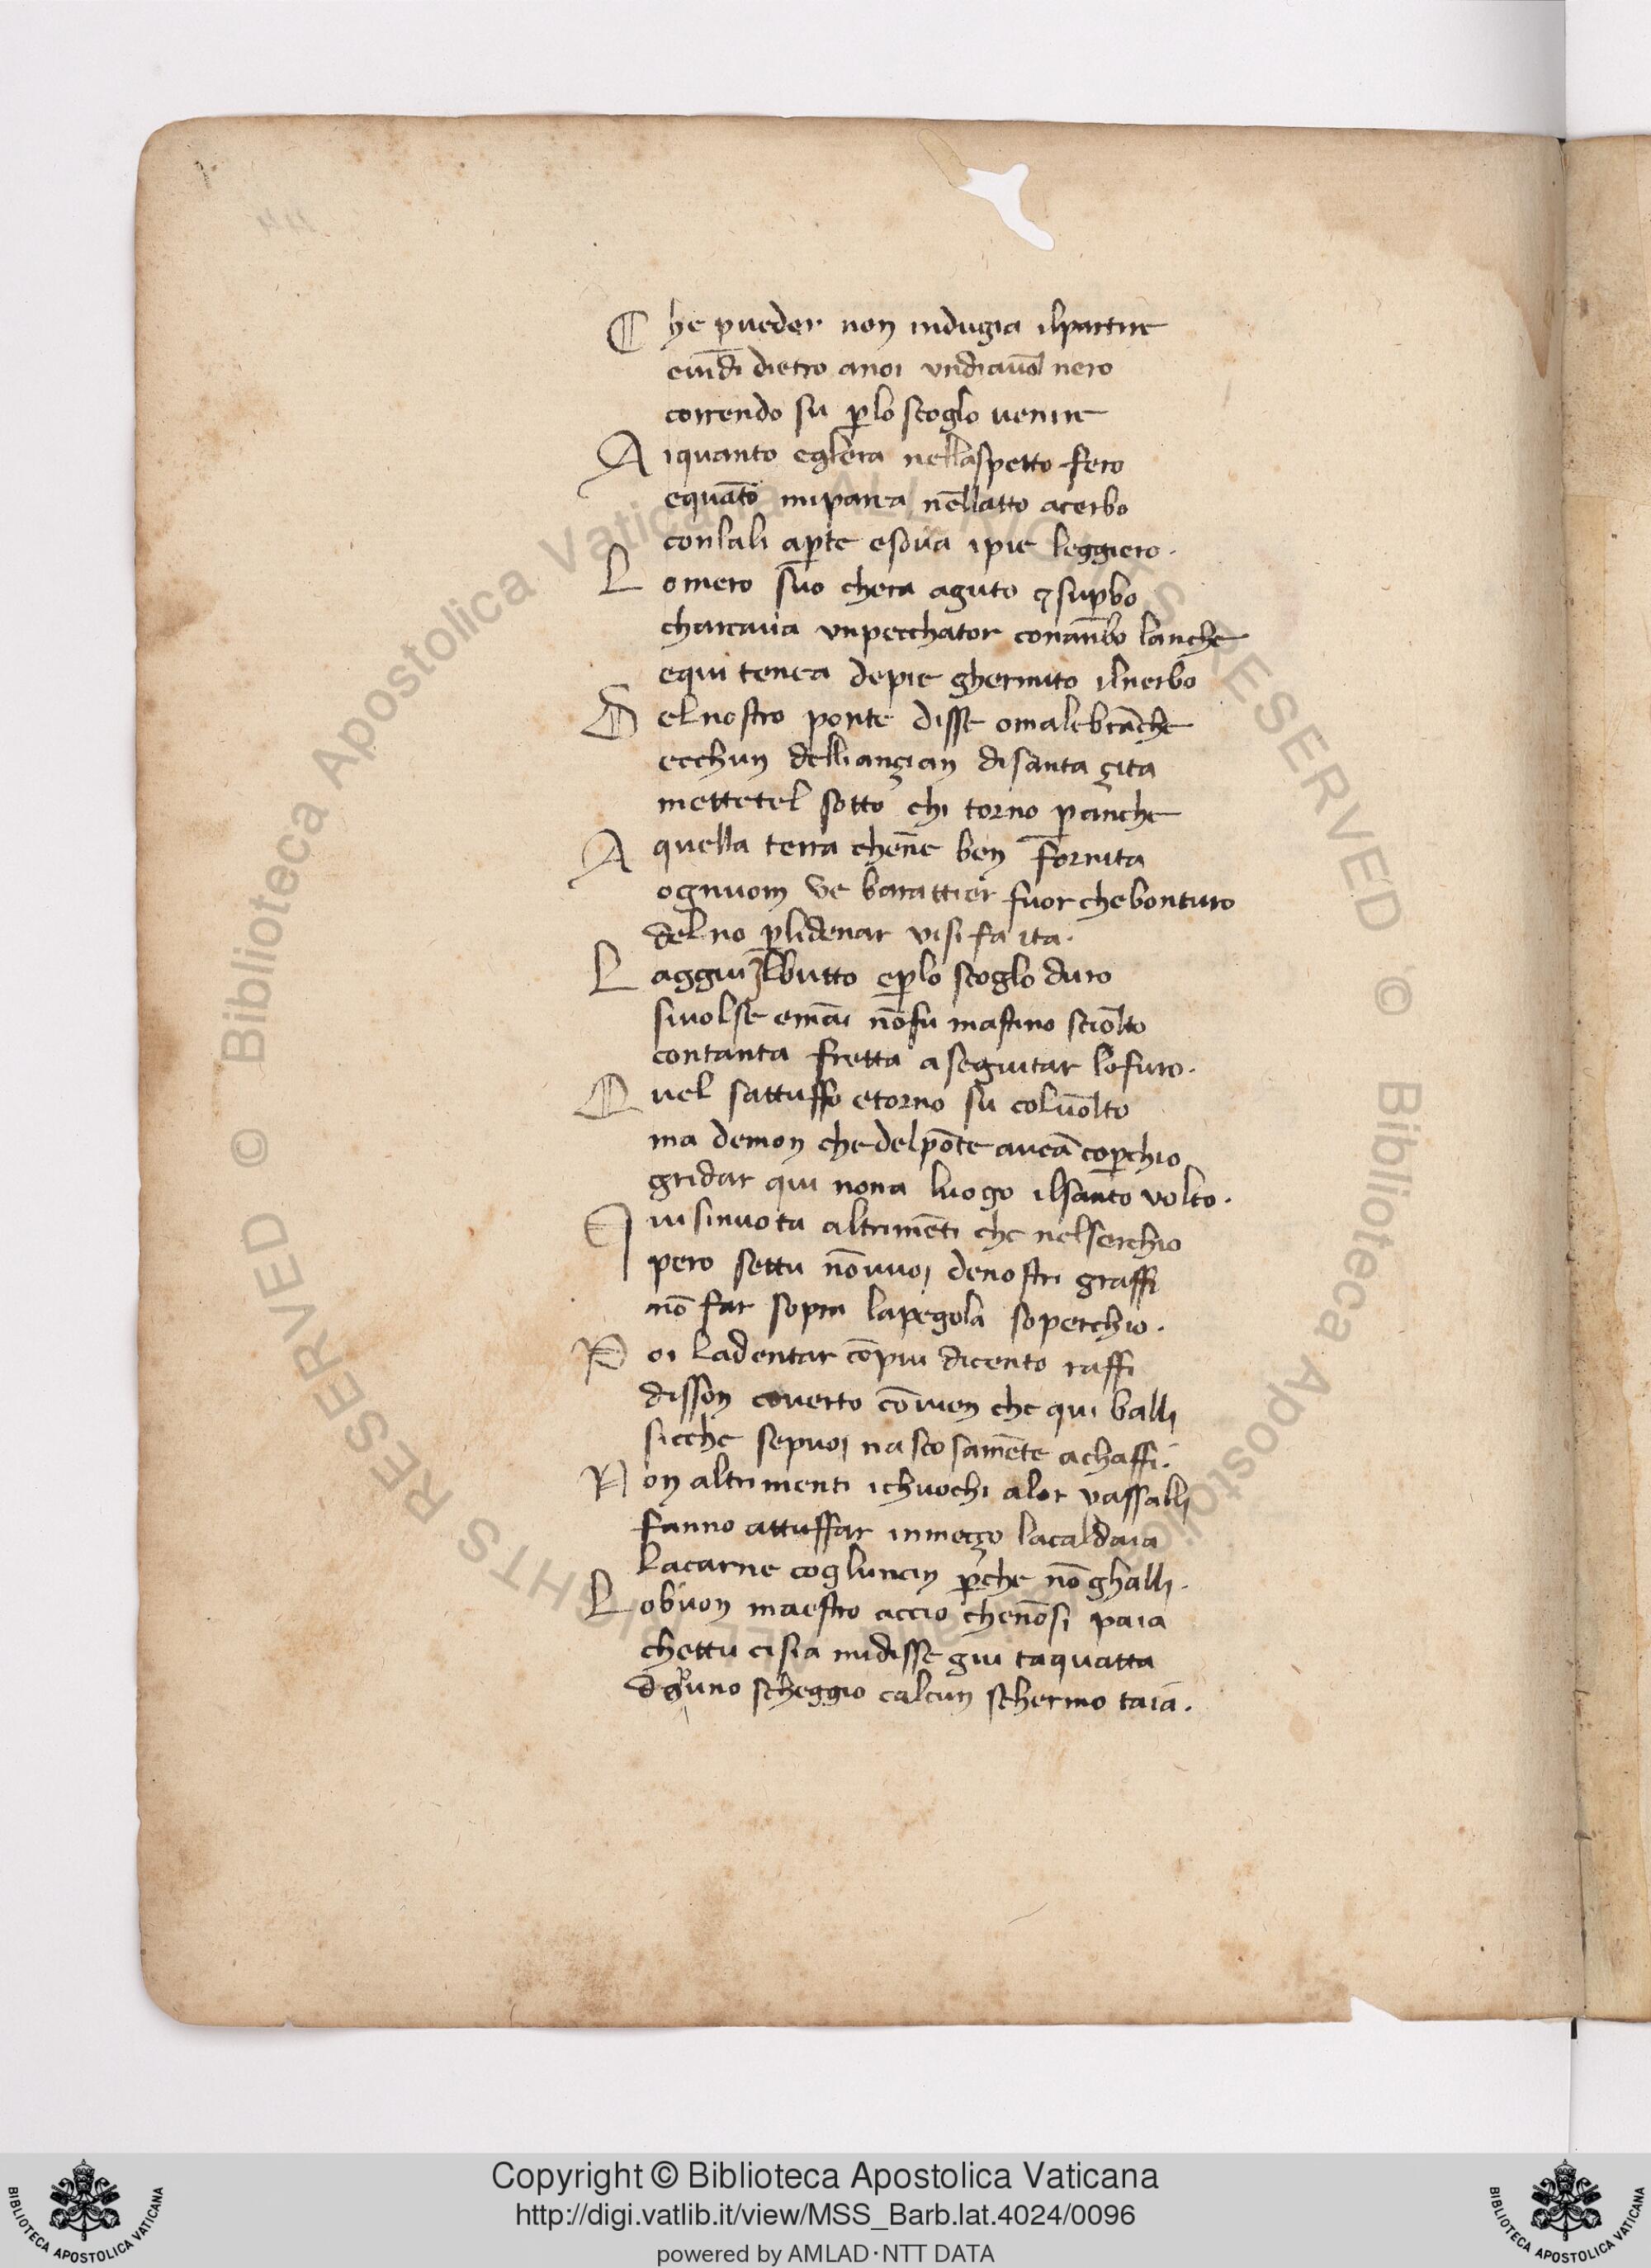 Che p̱ueder non indugia ilpartire
euid̄i dietro anoi vndiauōl nero
correndo su p̱lo scoglo uenire
Aiquanto eglera nellaspetto fero
equāto miparea nellatto acerbo
conlali ap̱te esoura ipie leggiero.
Lomero suo chera aguto ⁊ sup̱bo
charcaua vnpecchator conambo lanche
equi tenea depie ghermito ilnerbo
Del nostro ponte disse omalebrāche
ecchun dellianziani disanta çita
mettetel sotto chi torno p̱anche
A quella terra chene ben fornita
ognuom ve barattier fuor chebonturo
delno p̱lidenar visi fa ita.
Laggiu ilbutto ep̱lo scoglo duro
siuolse emāi nōfu mastino sciolto
contanta fretta aseguitar lofuro.
Quel sattuffo etorno su coluolto
ma demon chedelpōte aueā cop̱chio
gridar qui nona luogo ilsanto volto.
Quisinuota altrimēti che nelserchio
pero settu nōvuoi denostri graffi
nō far sopra lapegola soperchio.
Poi ladentar cōpiu dicento raffi
disson couerto cōuien che qui balli
sicche sepuoi nascosamēte achaffi.
Non altrimenti ichuochi alor vassalli
fanno attuffar inmeçço lacaldaia
lacarne cogluncin p̱che nō ghalli.
Lobuon maestro accio chenōsi paia
chettu cisia midisse giu taquatta
dopo uno scheggio calcun schermo taia.
Copyright © Biblioteca Apostolica Vaticana
http://digi.vatlib.it/view/MSS_Barb.lat.4024/0096
powered by AMLAD·NTT DATA
BIBLIOTECA APOSTOLICA VATICANA
BIBLIOTECA APOSTOLICA VATICANA
© Biblioteca Apostolica Vaticana ALL RIGHTS RESERVED
© Biblioteca Apostolica Vaticana ALL RIGHTS RESERVED